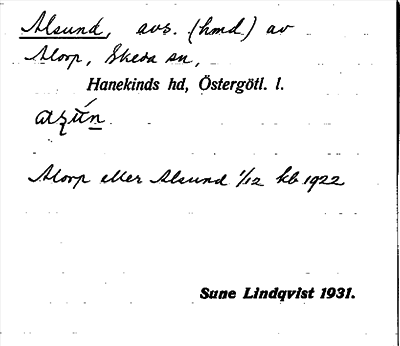 Alsund, avs. (hmd) av
Alorp, Skeda sn,
Hanekinds hd, Östergötl. l.
Alorp eller Alsund 1/12 kb 1922
Sune Lindqvist 1931.